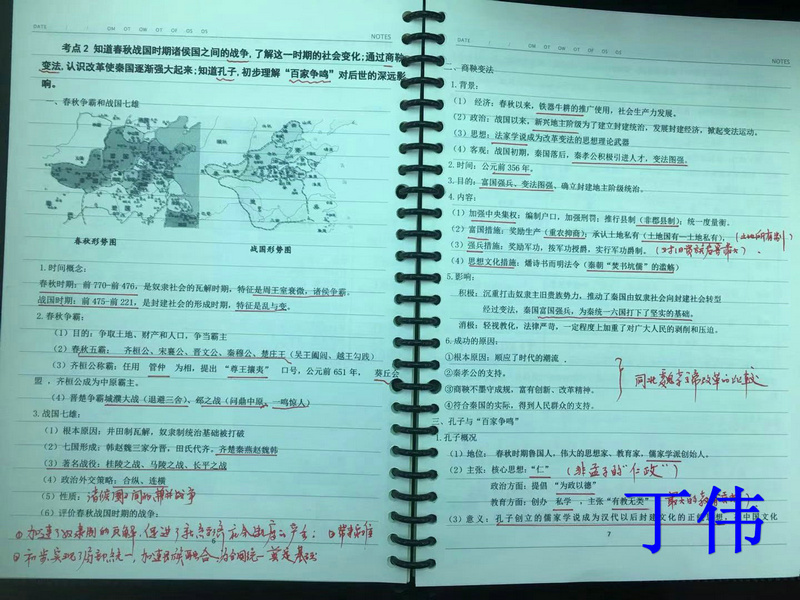 DATE
NOTES
考点2 知道春秋战国时期诸侯国之间的战争,了解这一时期的社会变化;通过商鞅
变法,认识改革使秦国逐渐强大起来;知道孔子,初步理解“百家争鸣”对后世的深远影
响。
一、春秋争霸和战国七雄
春秋形势图
战国形势图
1.时间概念:
春秋时期:前770-前476,是奴隶社会的瓦解时期,特征是周王室衰微,诸侯争霸。
战国时期:前475-前221,是封建社会的形成时期,特征是乱与变。
2.春秋争霸:
(1)目的:争取土地、财产和人口,争当霸主
(2)春秋五霸: 齐桓公、宋襄公、晋文公、秦穆公、楚庄王(吴王阖闾、越王勾践)
(3)齐桓公称霸:任用 管仲 为相,提出 “尊王攘夷” 口号,公元前651年, 葵丘会
盟 ,齐桓公成为中原霸主。
(4)晋楚争霸城濮大战(退避三舍)、邲之战(问鼎中原、一鸣惊人)
3.战国七雄:
(1)根本原因:井田制瓦解,奴隶制统治基础被打破
(2)七国形成:韩赵魏三家分晋,田氏代齐。齐楚秦燕赵魏韩
(3)著名战役:桂陵之战、马陵之战、长平之战
(4)政治外交策略:合纵、连横
(5)性质:诸侯国间的兼并战争
(6)评价春秋战国时期的战争:
DATE
NOTES
二、商鞅变法
1.背景:
(1) 经济:春秋以来,铁器牛耕的推广使用,社会生产力发展。
(2)政治:战国以来,新兴地主阶级为了建立封建统治,发展封建经济,掀起变法运动。
(3)思想:法家学说成为改革变法的思想理论武器
(4)客观:战国初期,秦国落后,秦孝公积极引进人才,变法图强。
2.时间:公元前356年。
3.目的:富国强兵、变法图强、确立封建地主阶级统治。
4.内容:
(1)加强中央集权:编制户口,加强刑罚;推行县制(非郡县制);统一度量衡。
(2)富国措施:奖励生产(重农抑商);承认土地私有(土地国有—土地私有),(土地所有制)
(3)强兵措施:奖励军功,按军功授爵,实行军功爵制。
(4)思想文化措施:燔诗书而明法令(秦朝“焚书坑儒”的滥觞)
5.影响:
积极:沉重打击奴隶主旧贵族势力,推动了秦国由奴隶社会向封建社会转型
经过变法,秦国富国强兵,为秦统一六国打下了坚实的基础。
消极:轻视教化,法律严苛,一定程度上加重了对广大人民的剥削和压迫。
6.成功的原因:
①根本原因:顺应了时代的潮流 .
②秦孝公的支持。
③商鞅不墨守成规,富有创新、改革精神。
④符合秦国的实际,得到人民群众的支持。
同北魏孝文帝改革的比较
三、孔子与“百家争鸣”
1.孔子概况
(1)地位: 春秋时期鲁国人,伟大的思想家、教育家,儒家学派创始人。
(2)主张:核心思想:“仁” (非孟子的“仁政”)
政治方面:提倡 “为政以德”
教育方面:创办 私学 ,主张“有教无类”
(3)意义:孔子创立的儒家学说成为汉代以后封建文化的正统思想 中国文化
7
丁伟